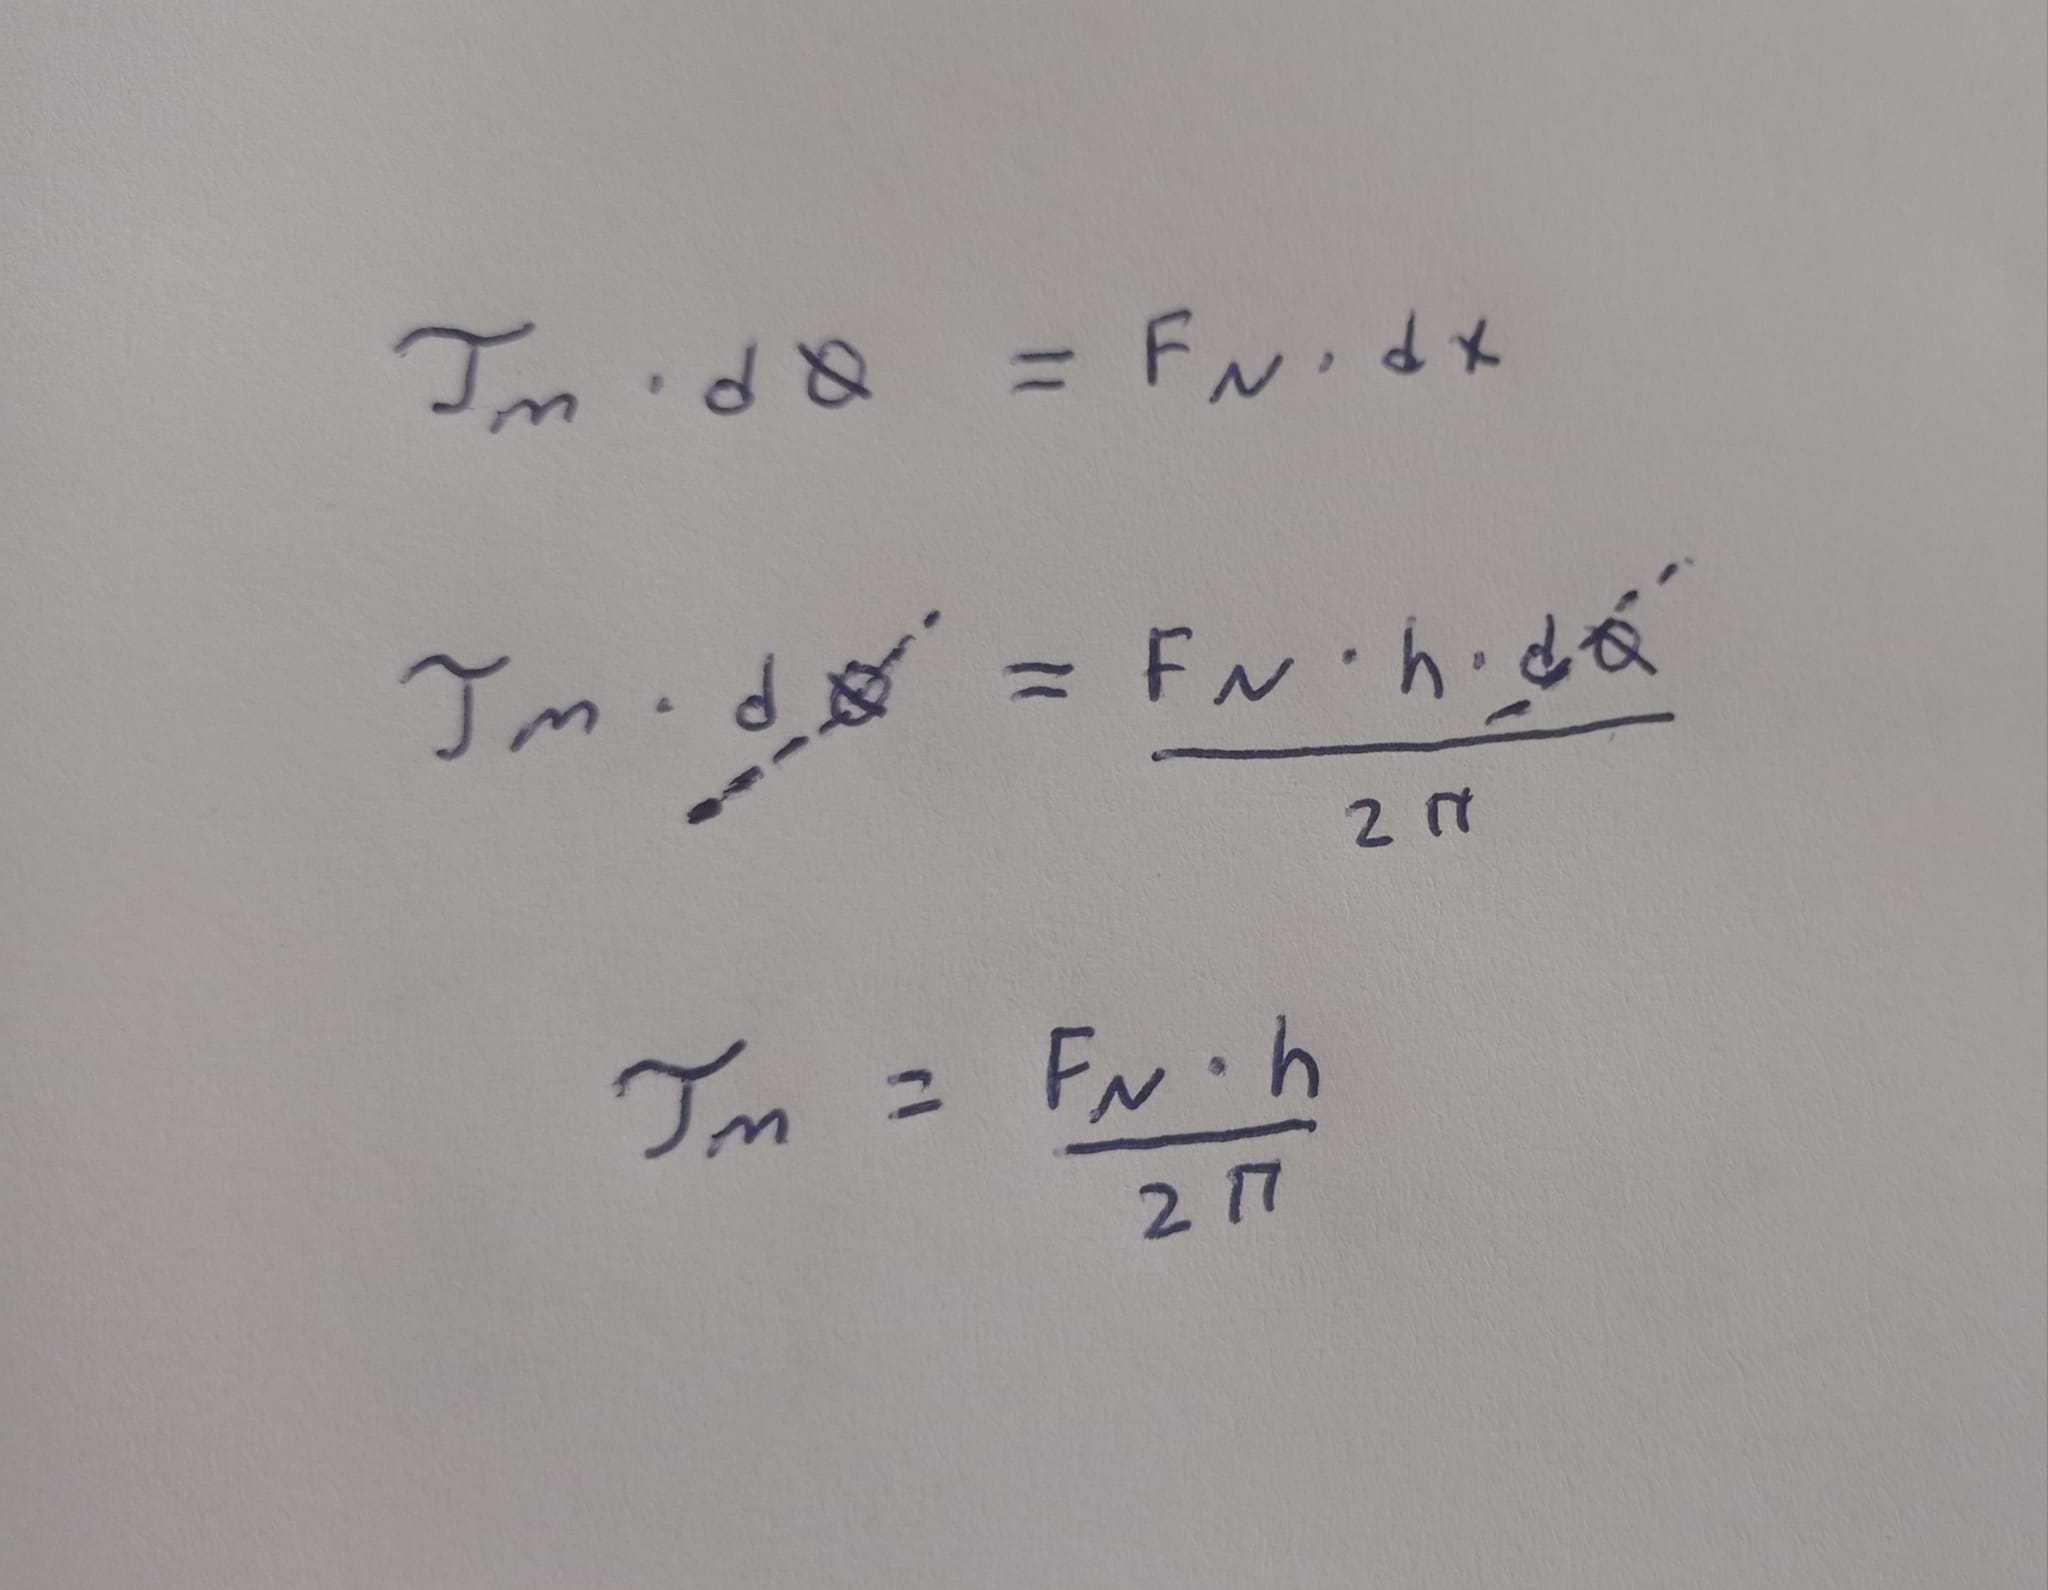 Tm · dθ = FN · dx
Tm · dθ = FN · h · dθ / 2π
Tm = FN · h / 2π